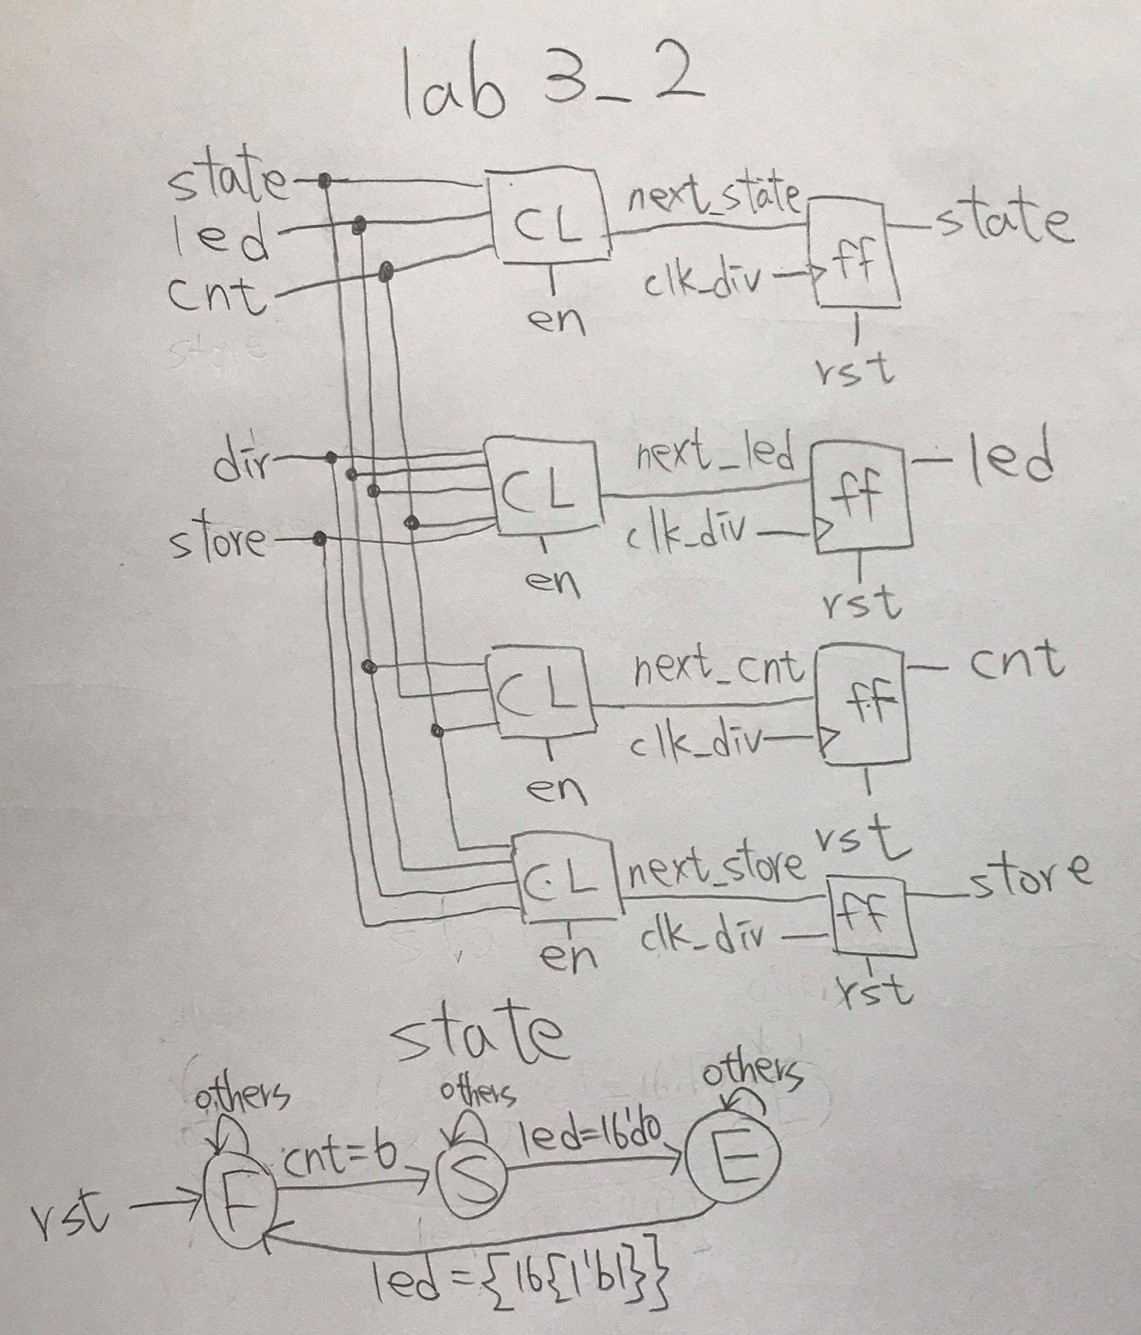 lab 3_2
state
led
cnt
CL
en
next_state
clk_div
ff
rst
state
store
dir
store
CL
en
next_led
clk_div
ff
rst
led
CL
en
next_cnt
clk_div
ff
rst
cnt
CL
en
next_store
clk_div
ff
rst
store
state
others
others
others
rst
F
cnt=6
S
led=16'd0
E
led={16{1'b1}}